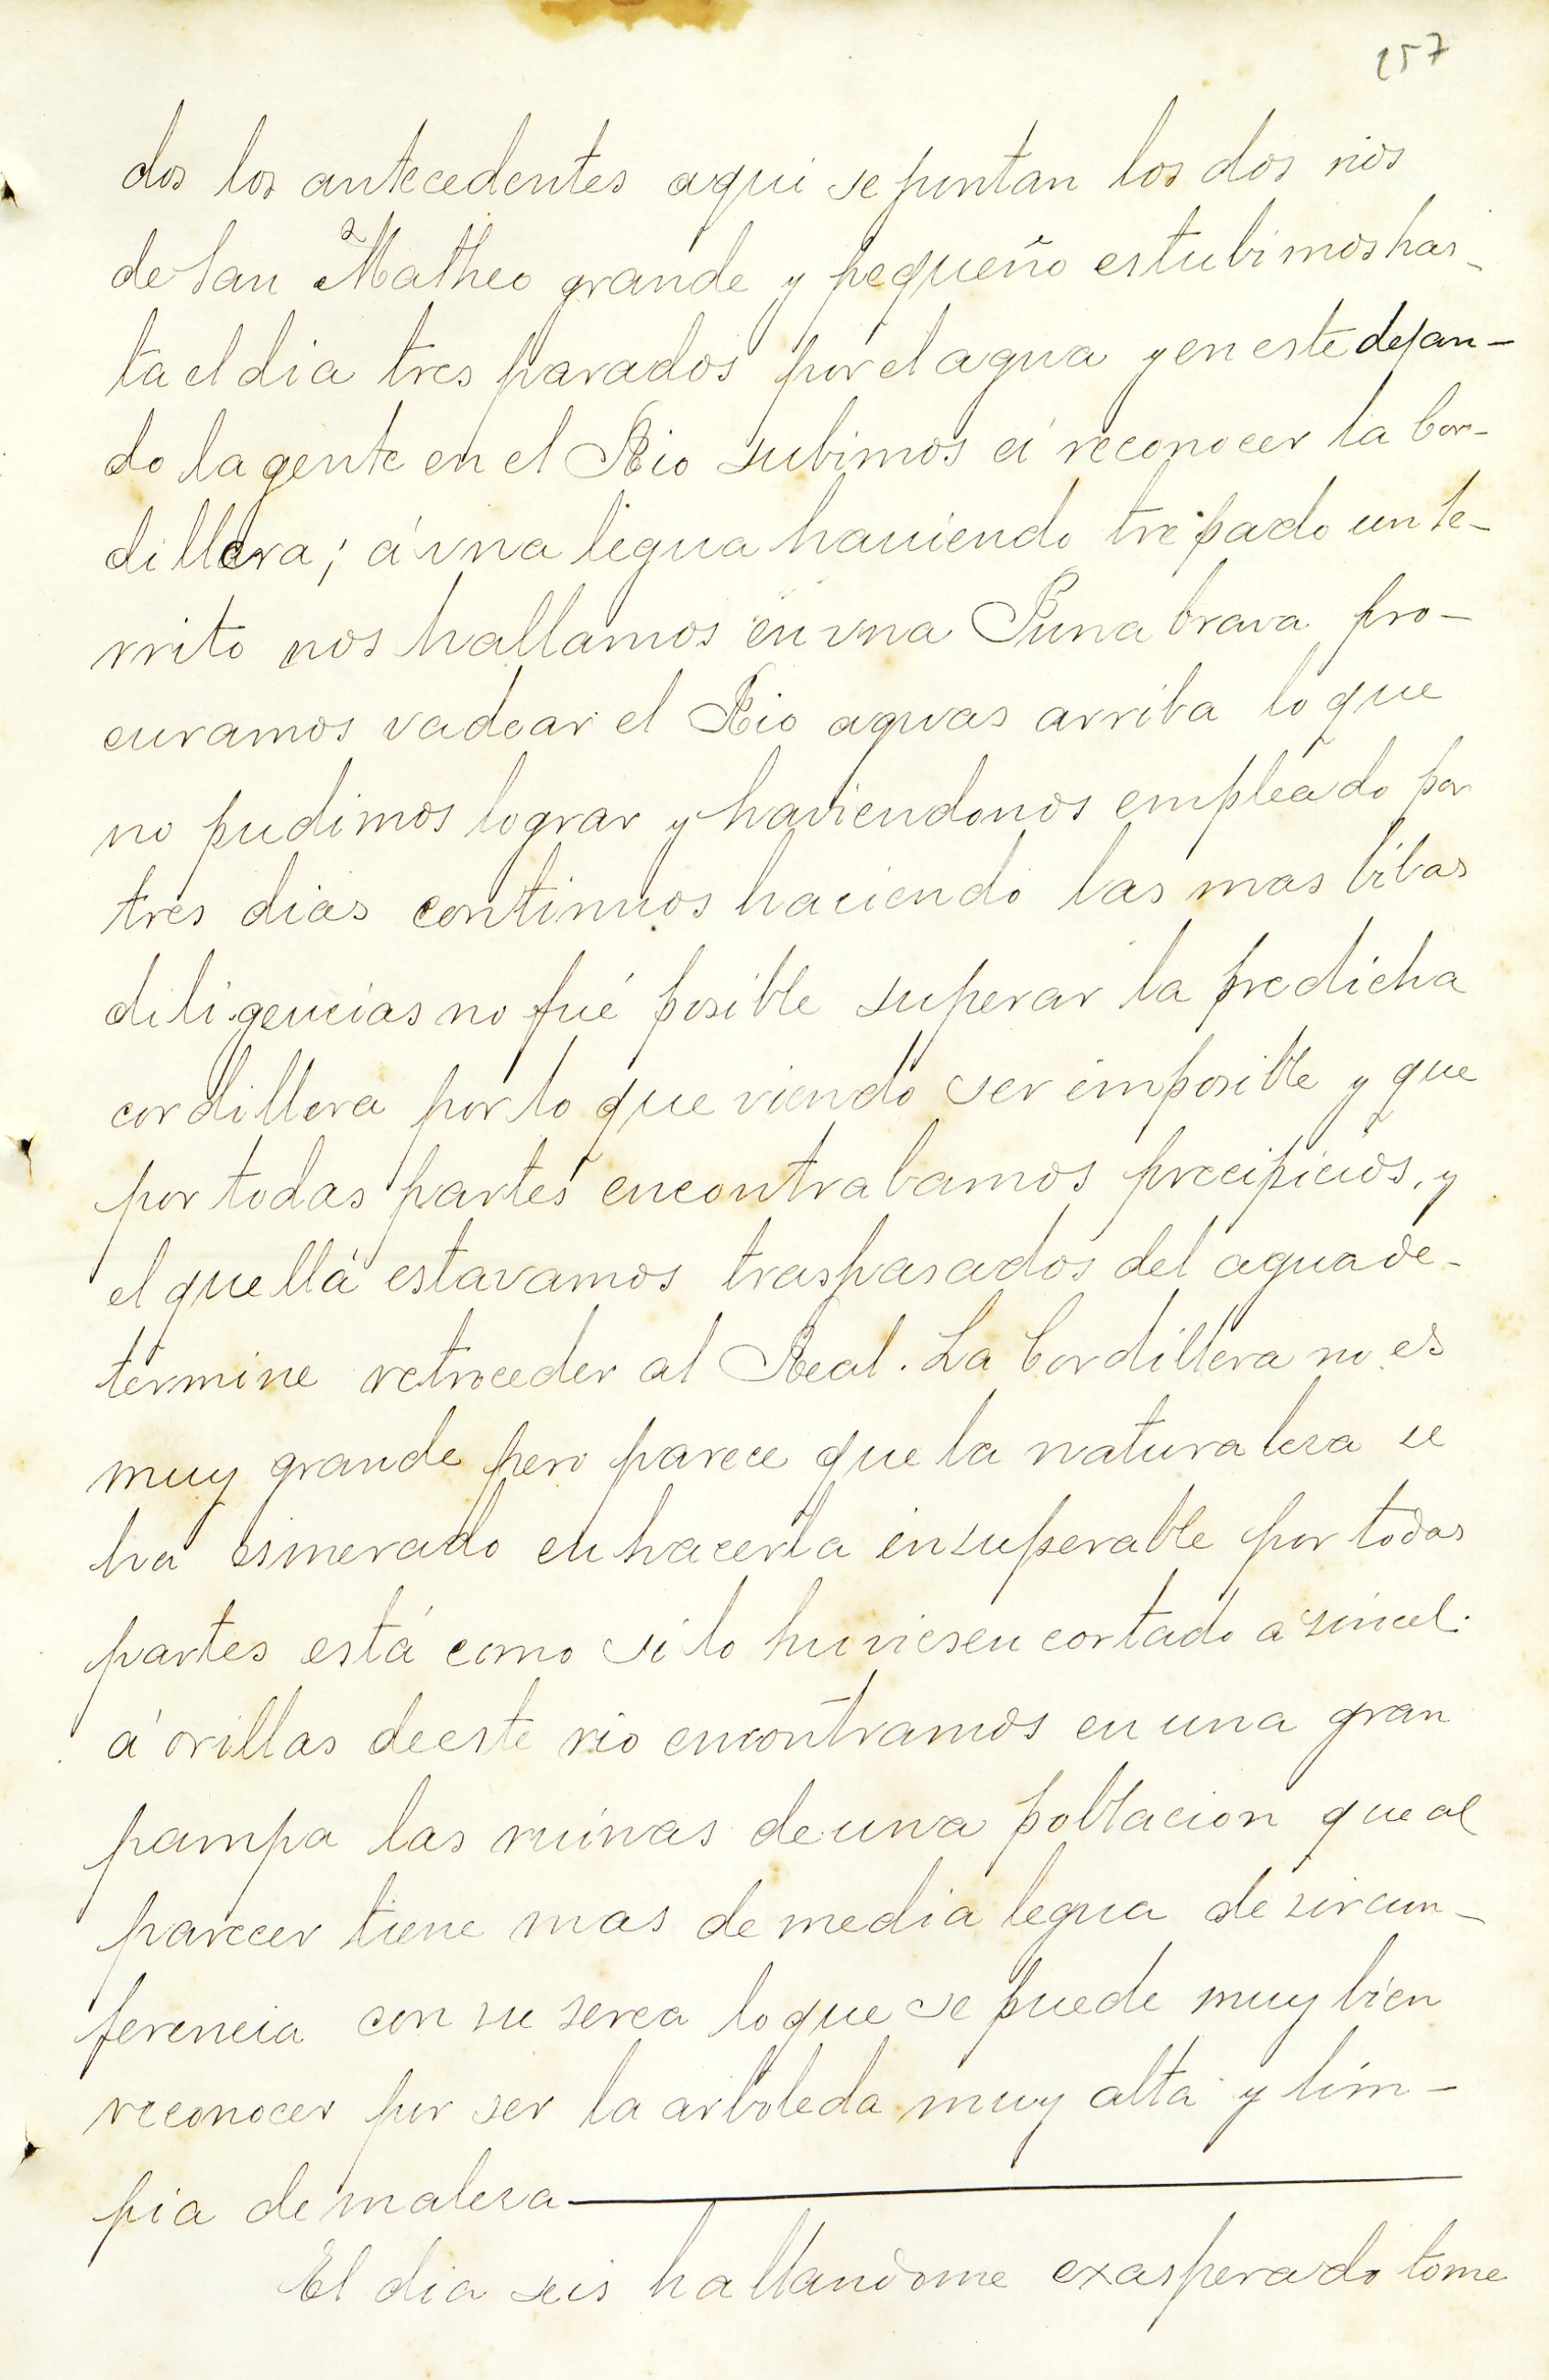 257
dos los antecedentes aqui se puntan los dos rios
de San Matheo grande y pequeño estubimos has-
ta el dia tres parados por el agua y en este dejan-
do la gente en el Rio subimos á reconocer la Cor-
dillera; á vna legua haviendo trepado un se-
rrito nos hallamos en vna Puna brava pro-
curamos vadear el Rio aguas arriba lo que
no pudimos lograr y haviendonos empleado por
tres dias continuos haciendo las mas bibas
diligencias no fué posible superar la predicha
cordillera por lo que viendo ser imposible y que
por todas partes encontrabamos precipicios, y
el que llá estavamos traspasados del agua de-
termine retroceder al Real. La Cordillera no es
muy grande pero parece que la naturalesa se
ha esmerado en hacerla insuperable por todas
partes está como si lo huviesen cortado a sincel.
á orillas de este rio encontramos en una gran
pampa las ruinas de una poblacion que al
parecer tiene mas de media legua de sircun-
ferencia con su serca lo que se puede muy bien
reconocer por ser la arboleda muy alta y lim-
pia de malesa
El dia seis hallandome exasperado tome